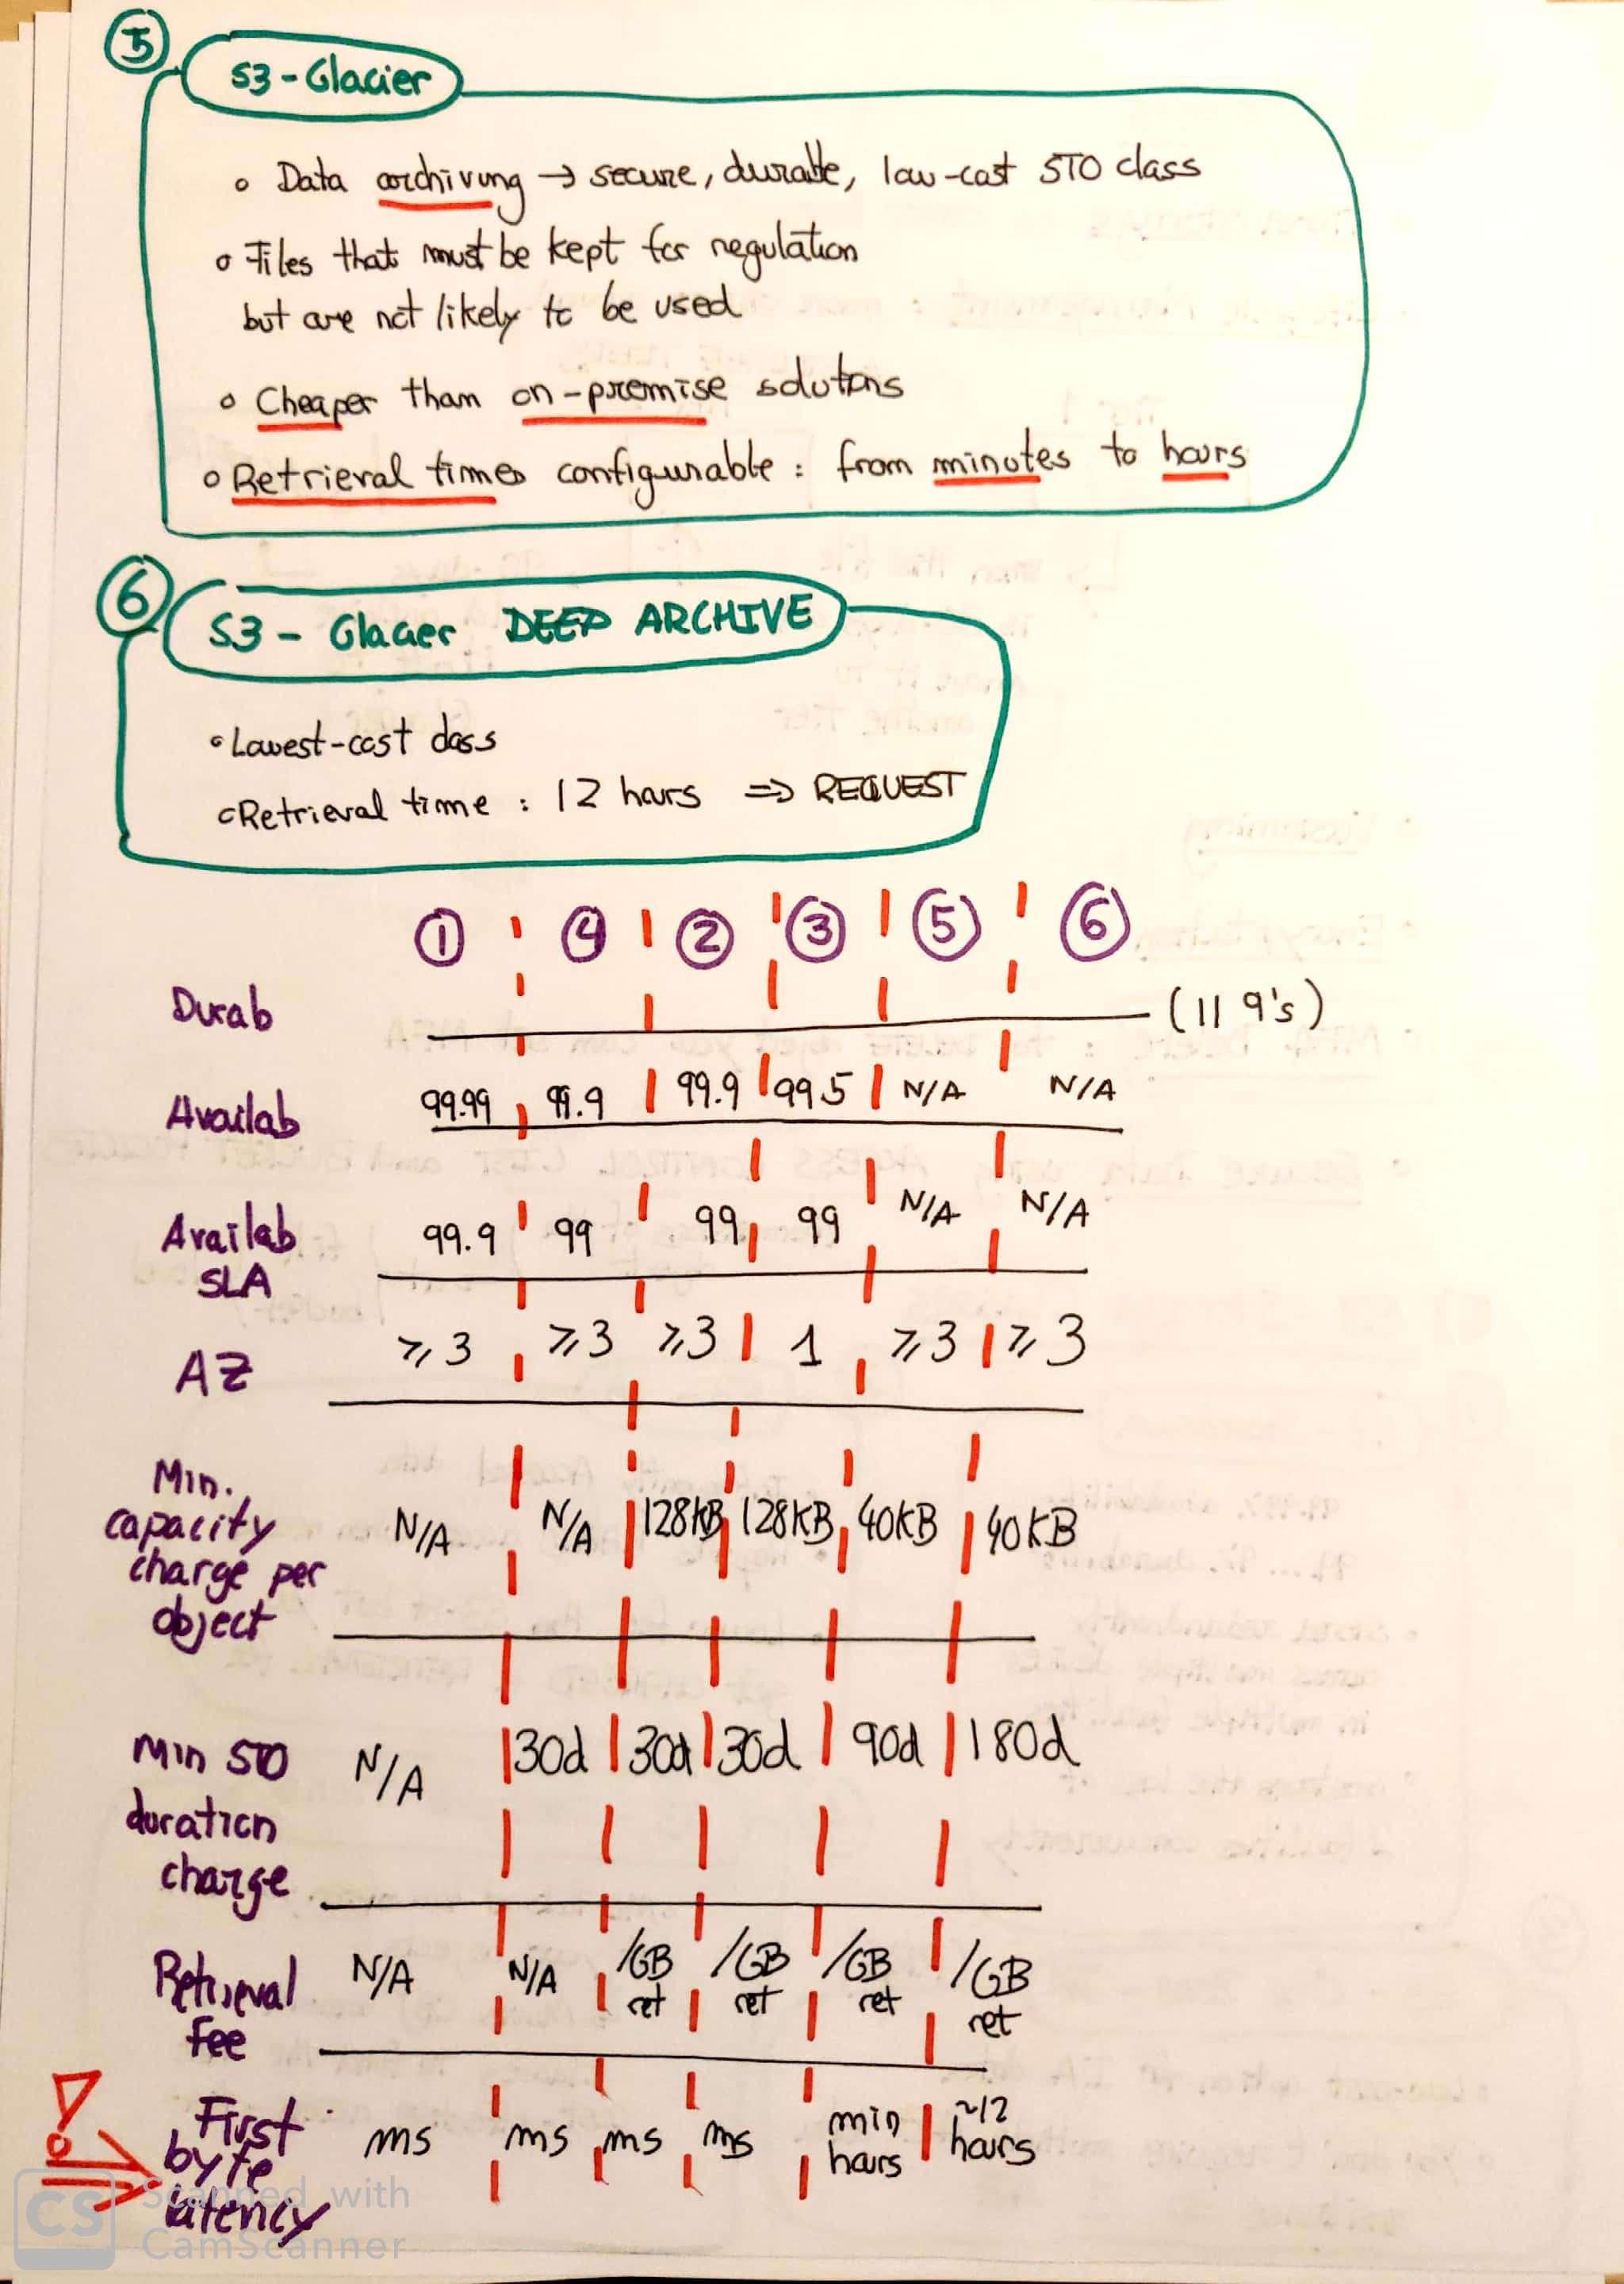 5
S3 - Glacier
o Data archiving → secure, durable, low-cost STO class
o Files that must be kept for regulation
but are not likely to be used
o Cheaper than on-premise solutions
o Retrieval times configurable : from minutes to hours
6
S3 - Glacier DEEP ARCHIVE
• Lowest-cost class
o Retrieval time : 12 hours ⇒ REQUEST
1 4 2 3 5 6
Durab (11 9's)
Availab 99.99 99.9 99.9 99.5 N/A N/A
Availab 99.9 99 99 99 N/A N/A
SLA
AZ ≥3 ≥3 ≥3 1 ≥3 ≥3
Min.
capacity N/A N/A 128KB 128KB 40KB 40KB
charge per
object
Min STO N/A 30d 30d 30d 90d 180d
duration
charge
Retrieval N/A N/A /GB ret /GB ret /GB ret /GB ret
Fee
First ms ms ms ms min hours ~12 hours
byte
latency
CS Scanned with
CamScanner